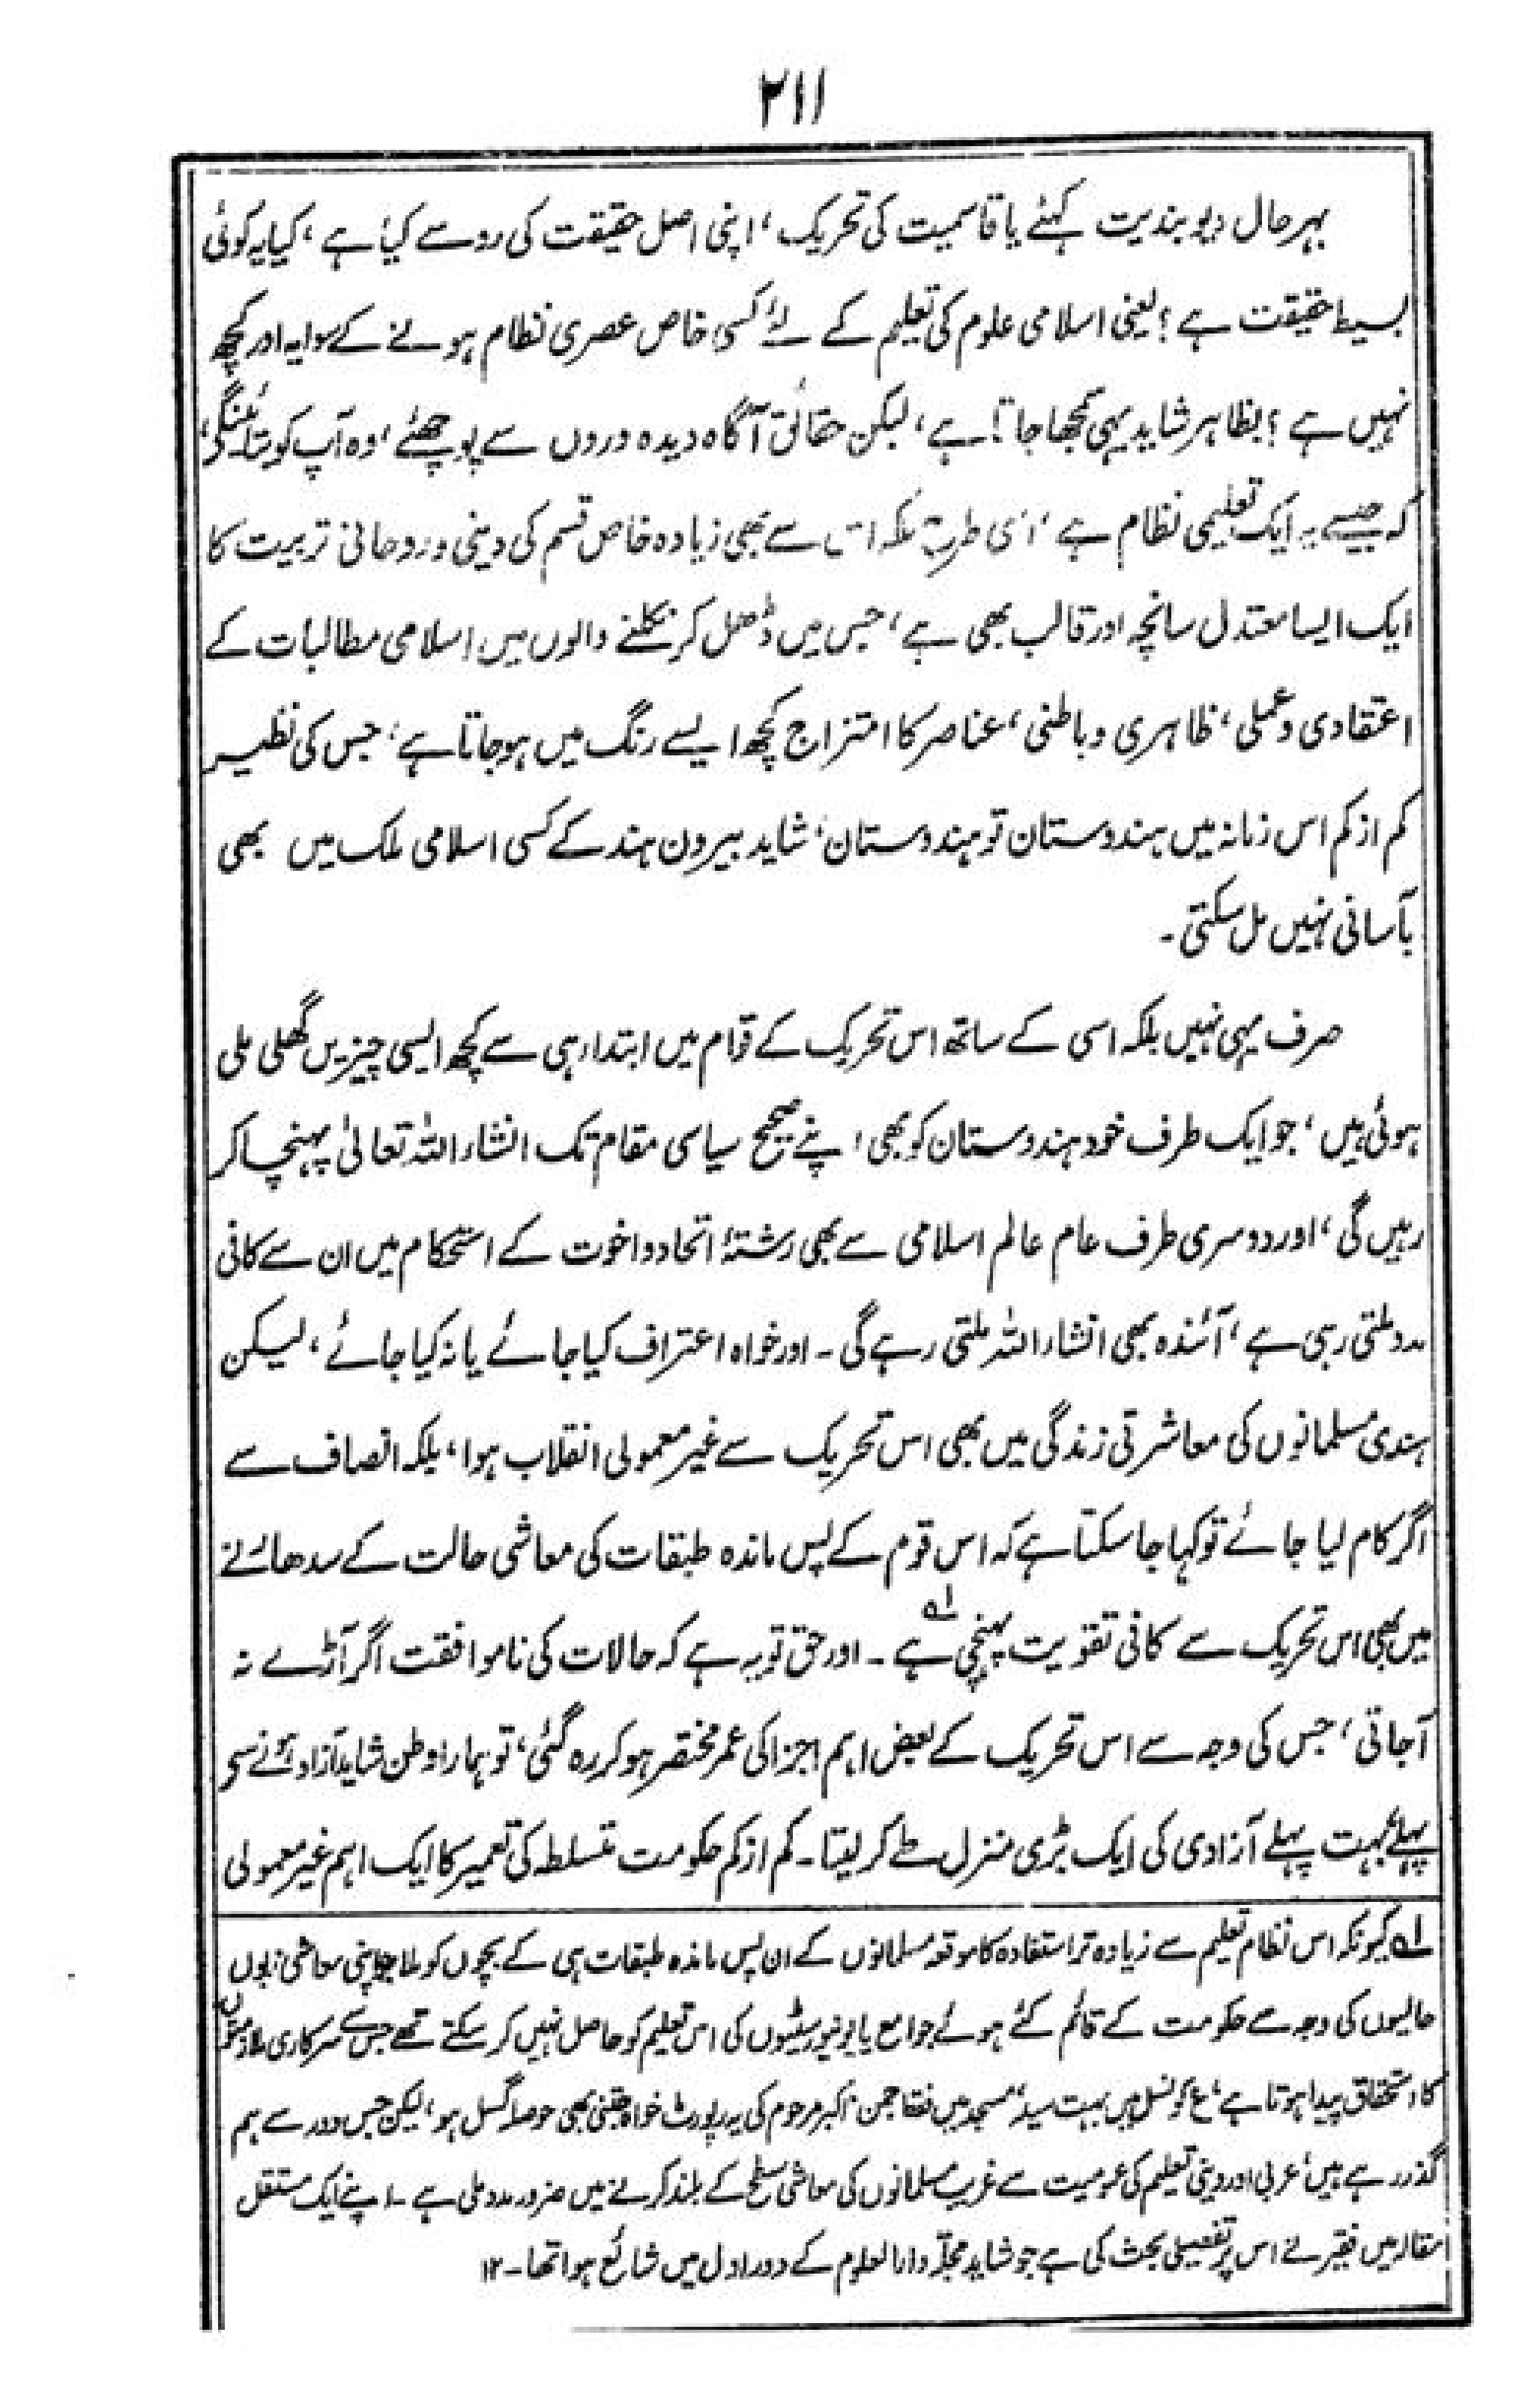 ۲۱۱
بہرحال دیوبندیت کہئے یا قاسمیت کی تحریک، اپنی اصل حقیقت کی رو سے کیا ہے، کیا یہ کوئی
بسیط حقیقت ہے؟ یعنی اسلامی علوم کی تعلیم کے لئے کسی خاص عصری نظام ہونے کے سوا یہ اور کچھ
نہیں ہے؟ بظاہر شاید یہی سمجھا جاتا ہے، لیکن حقائق آگاہ دیدہ وروں سے پوچھئے، وہ آپ کو بتائینگے،
کہ جیسے یہ ایک تعلیمی نظام ہے، اسی طرح بلکہ اس سے بھی زیادہ خاص قسم کی دینی و روحانی تربیت کا
ایک ایسا معتدل سانچہ اور قالب بھی ہے، جس میں ڈھل کر نکلنے والوں میں اسلامی مطالبات کے
اعتقادی و عملی، ظاہری و باطنی، عناصر کا امتزاج کچھ ایسے رنگ میں ہوجاتا ہے، جس کی نظیر
کم از کم اس زمانہ میں ہندوستان تو ہندوستان، شاید بیرون ہند کے کسی اسلامی ملک میں بھی
بآسانی نہیں مل سکتی۔
صرف یہی نہیں بلکہ اسی کے ساتھ اس تحریک کے قوام میں ابتدا رہی سے کچھ ایسی چیزیں گھلی ملی
ہوئی ہیں، جو ایک طرف خود ہندوستان کو بھی اپنے صحیح سیاسی مقام تک انشاء اللہ تعالیٰ پہنچا کر
رہیں گی، اور دوسری طرف عام عالم اسلامی سے بھی رشتۂ اتحاد و اخوت کے استحکام میں ان سے کافی
مدد ملتی رہی ہے، آئندہ بھی انشاء اللہ ملتی رہے گی۔ اور خواہ اعتراف کیا جائے یا نہ کیا جائے، لیکن
ہندی مسلمانوں کی معاشرتی زندگی میں بھی اس تحریک سے غیر معمولی انقلاب ہوا، بلکہ انصاف سے
اگر کام لیا جائے تو کہا جا سکتا ہے کہ اس قوم کے پس ماندہ طبقات کی معاشی حالت کے سدھارنے
میں بھی اس تحریک سے کافی تقویت پہنچی ہے۔ لہ اور حق تو یہ ہے کہ حالات کی ناموافقت اگر آڑے نہ
آجاتی، جس کی وجہ سے اس تحریک کے بعض اہم اجزا کی عمر مختصر ہو کر رہ گئی، تو ہمارا وطن شاید آزاد ہونے سے
پہلے بہت پہلے آزادی کی ایک بڑی منزل طے کر لیتا۔ کم از کم حکومت متسلطہ کی تعمیر کا ایک اہم غیر معمولی
لہ کیونکہ اس نظام تعلیم سے زیادہ تر استفادہ کا موقعہ مسلمانوں کے ان پس ماندہ طبقات ہی کے بچوں کو ملا جو اپنی معاشی زبوں
حالیوں کی وجہ سے حکومت کے قائم کئے ہوئے جوامع یا یونیورسٹیوں کی اس تعلیم کو حاصل نہیں کر سکتے تھے جس سے سرکاری ملازمتوں
کا استحقاق پیدا ہوتا ہے، ع کونسل میں بہت سید، مسجد میں فقط جمن، اکبر مرحوم کی یہ رپورٹ خواہ جتنی بھی حوصلہ گسل ہو، لیکن جس دور سے ہم
گذر رہے ہیں، عربی اور دینی تعلیم کی عمومیت سے غریب مسلمانوں کی معاشی سطح کے بلند کرنے میں ضرور مدد ملی ہے۔ اپنے ایک مستقل
مقالہ میں فقیر نے اس پر تفصیلی بحث کی ہے جو شاید مجلّہ دارالعلوم کے دور اول میں شائع ہوا تھا۔ ۱۲